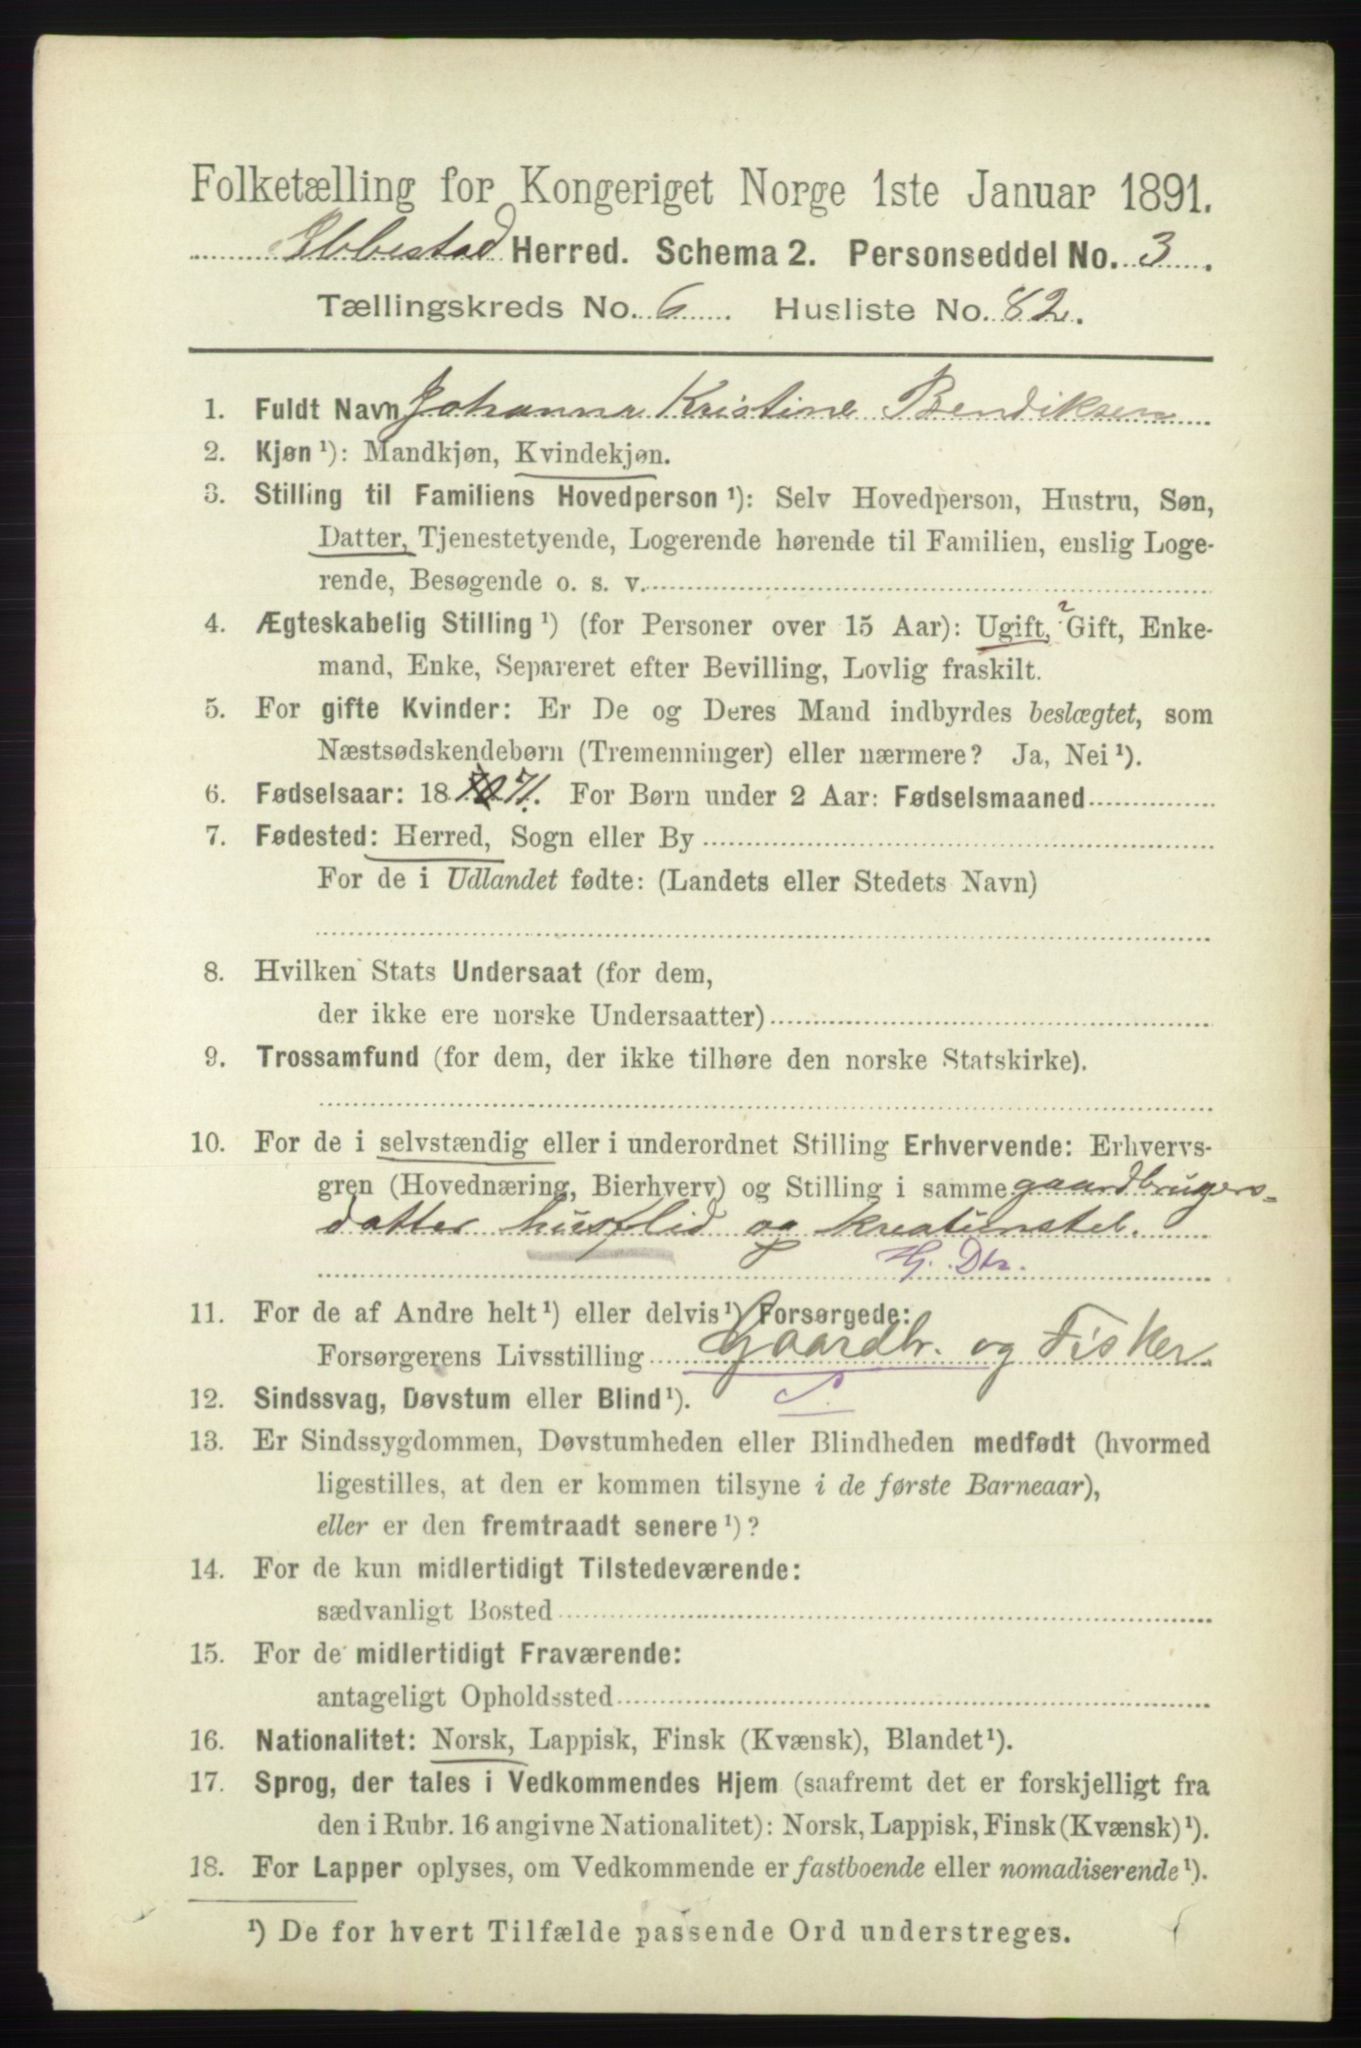 Folketælling for Kongeriget Norge 1ste Januar 1891.
Ibbestad Herred. Schema 2. Personseddel No. 3.
Tællingskreds No. 6. Husliste No. 82.
1. Fuldt Navn Johanna Kristine Bendiksen
2. Kjøn ¹): Mandkjøn, Kvindekjøn.
3. Stilling til Familiens Hovedperson ¹): Selv Hovedperson, Hustru, Søn,
Datter, Tjenestetyende, Logerende hørende til Familien, enslig Loge-
rende, Besøgende o. s. v.
4. Ægteskabelig Stilling ¹) (for Personer over 15 Aar): Ugift, ² Gift, Enke-
mand, Enke, Separeret efter Bevilling, Lovlig fraskilt.
5. For gifte Kvinder: Er De og Deres Mand indbyrdes beslægtet, som
Næstsødskendebørn (Tremenninger) eller nærmere? Ja, Nei ¹).
6. Fødselsaar: 18 70 71. For Børn under 2 Aar: Fødselsmaaned
7. Fødested: Herred, Sogn eller By
For de i Udlandet fødte: (Landets eller Stedets Navn)
8. Hvilken Stats Undersaat (for dem,
der ikke ere norske Undersaatter)
9. Trossamfund (for dem, der ikke tilhøre den norske Statskirke).
10. For de i selvstændig eller i underordnet Stilling Erhvervende: Erhvervs-
gren (Hovednæring, Bierhverv) og Stilling i samme gaardbrugers-
datter husflid og kreaturstel.
H. Dtr.
11. For de af Andre helt ¹) eller delvis ¹) Forsørgede:
Forsørgerens Livsstilling Gaardbr. og Fisker
12. Sindssvag, Døvstum eller Blind ¹). S.
13. Er Sindssygdommen, Døvstumheden eller Blindheden medfødt (hvormed
ligestilles, at den er kommen tilsyne i de første Barneaar),
eller er den fremtraadt senere ¹)?
14. For de kun midlertidigt Tilstedeværende:
sædvanligt Bosted
15. For de midlertidigt Fraværende:
antageligt Opholdssted
16. Nationalitet: Norsk, Lappisk, Finsk (Kvænsk), Blandet ¹).
17. Sprog, der tales i Vedkommendes Hjem (saafremt det er forskjelligt fra
den i Rubr. 16 angivne Nationalitet): Norsk, Lappisk, Finsk (Kvænsk) ¹).
18. For Lapper oplyses, om Vedkommende er fastboende eller nomadiserende ¹).
¹) De for hvert Tilfælde passende Ord understreges.